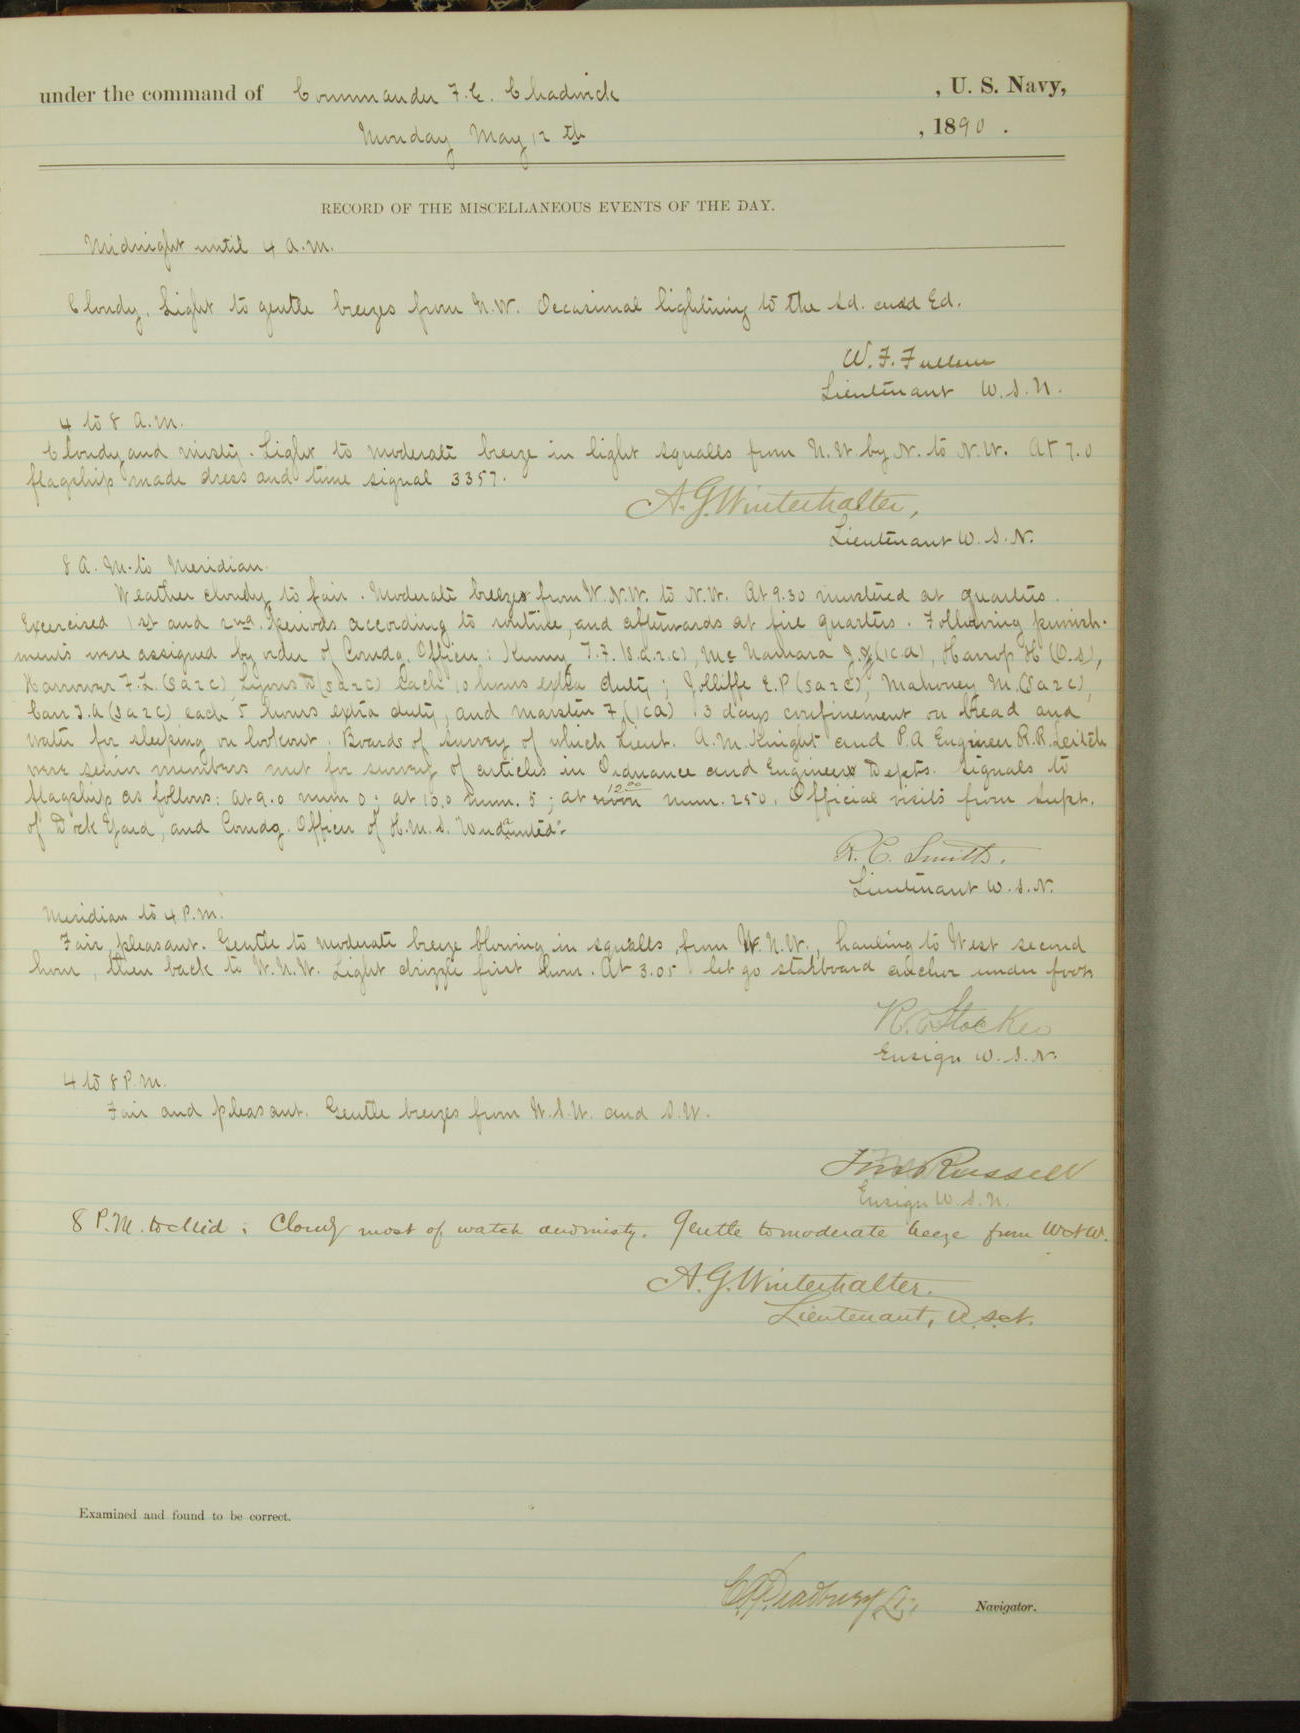 under the command of Commander F. E. Chadwick , U. S. Navy,
Monday May 12th , 1890 .
RECORD OF THE MISCELLANEOUS EVENTS OF THE DAY.
Midnight until 4 A.M.
Cloudy. Light to gentle breezes from N.W. Occasional lightning to the Sd. and Ed.
W. F. Fullam
Lieutenant U.S.N.
4 to 8 A.M.
Cloudy and misty. Light to moderate breeze in light squalls from N.W. by N. to N.W. At 7.0
flagship made dress and time signal 3357.
A.G. Winterhalter,
Lieutenant U.S.N.
8 A.M. to Meridian.
Weather cloudy to fair. Moderate breezes from W.N.W. to N.W. At 9.30 mustered at quarters.
Exercised 1st and 2nd periods according to routine, and afterwards at fire quarters. Following punish-
ments were assigned by order of Comdg. Officer: Kenny T.F. (S.a.2.c), McNamara (1ca), Harrop H (O.S),
Harrower F.L. (Sa2c) Lyons (Sa2c) Each 10 hours extra duty; Jolliffe E.P (Sa2c), Mahoney M. (Sa2c),
Carr J.A (Sa2c) each 5 hours extra duty, and Marsten F. (1ca) 3 days confinement on bread and
water for sleeping on lookout. Boards of survey of which Lieut. A.M. Knight and P.A Engineer R.R. Leitch
were senior members met for survey of articles in Ordnance and Engineers Depts. Signals to
flagship as follows: at 9.0 num 0; at 10.0 num. 5; at 12.00 num. 250. Official visits from Supt.
of Dock Yard, and Comdg. Officer of H.M.S. "Undaunted".
R. C. Smith.
Lieutenant U.S.N.
Meridian to 4 P.M.
Fair, pleasant. Gentle to moderate breeze blowing in squalls, from W.N.W., hauling to West second
hour, then back to W.N.W. Light drizzle first hour. At 3.05 let go starboard anchor under foot
Ensign U.S.N.
4 to 8 P.M.
Fair and pleasant. Gentle breezes from W.S.W. and S.W.
Russell
Ensign U.S.N.
8 P.M. to Mid: Cloudy most of watch and misty. Gentle to moderate breeze from WNW.
A.G. Winterhalter.
Lieutenant, U.S.N.
Examined and found to be correct.
Navigator.